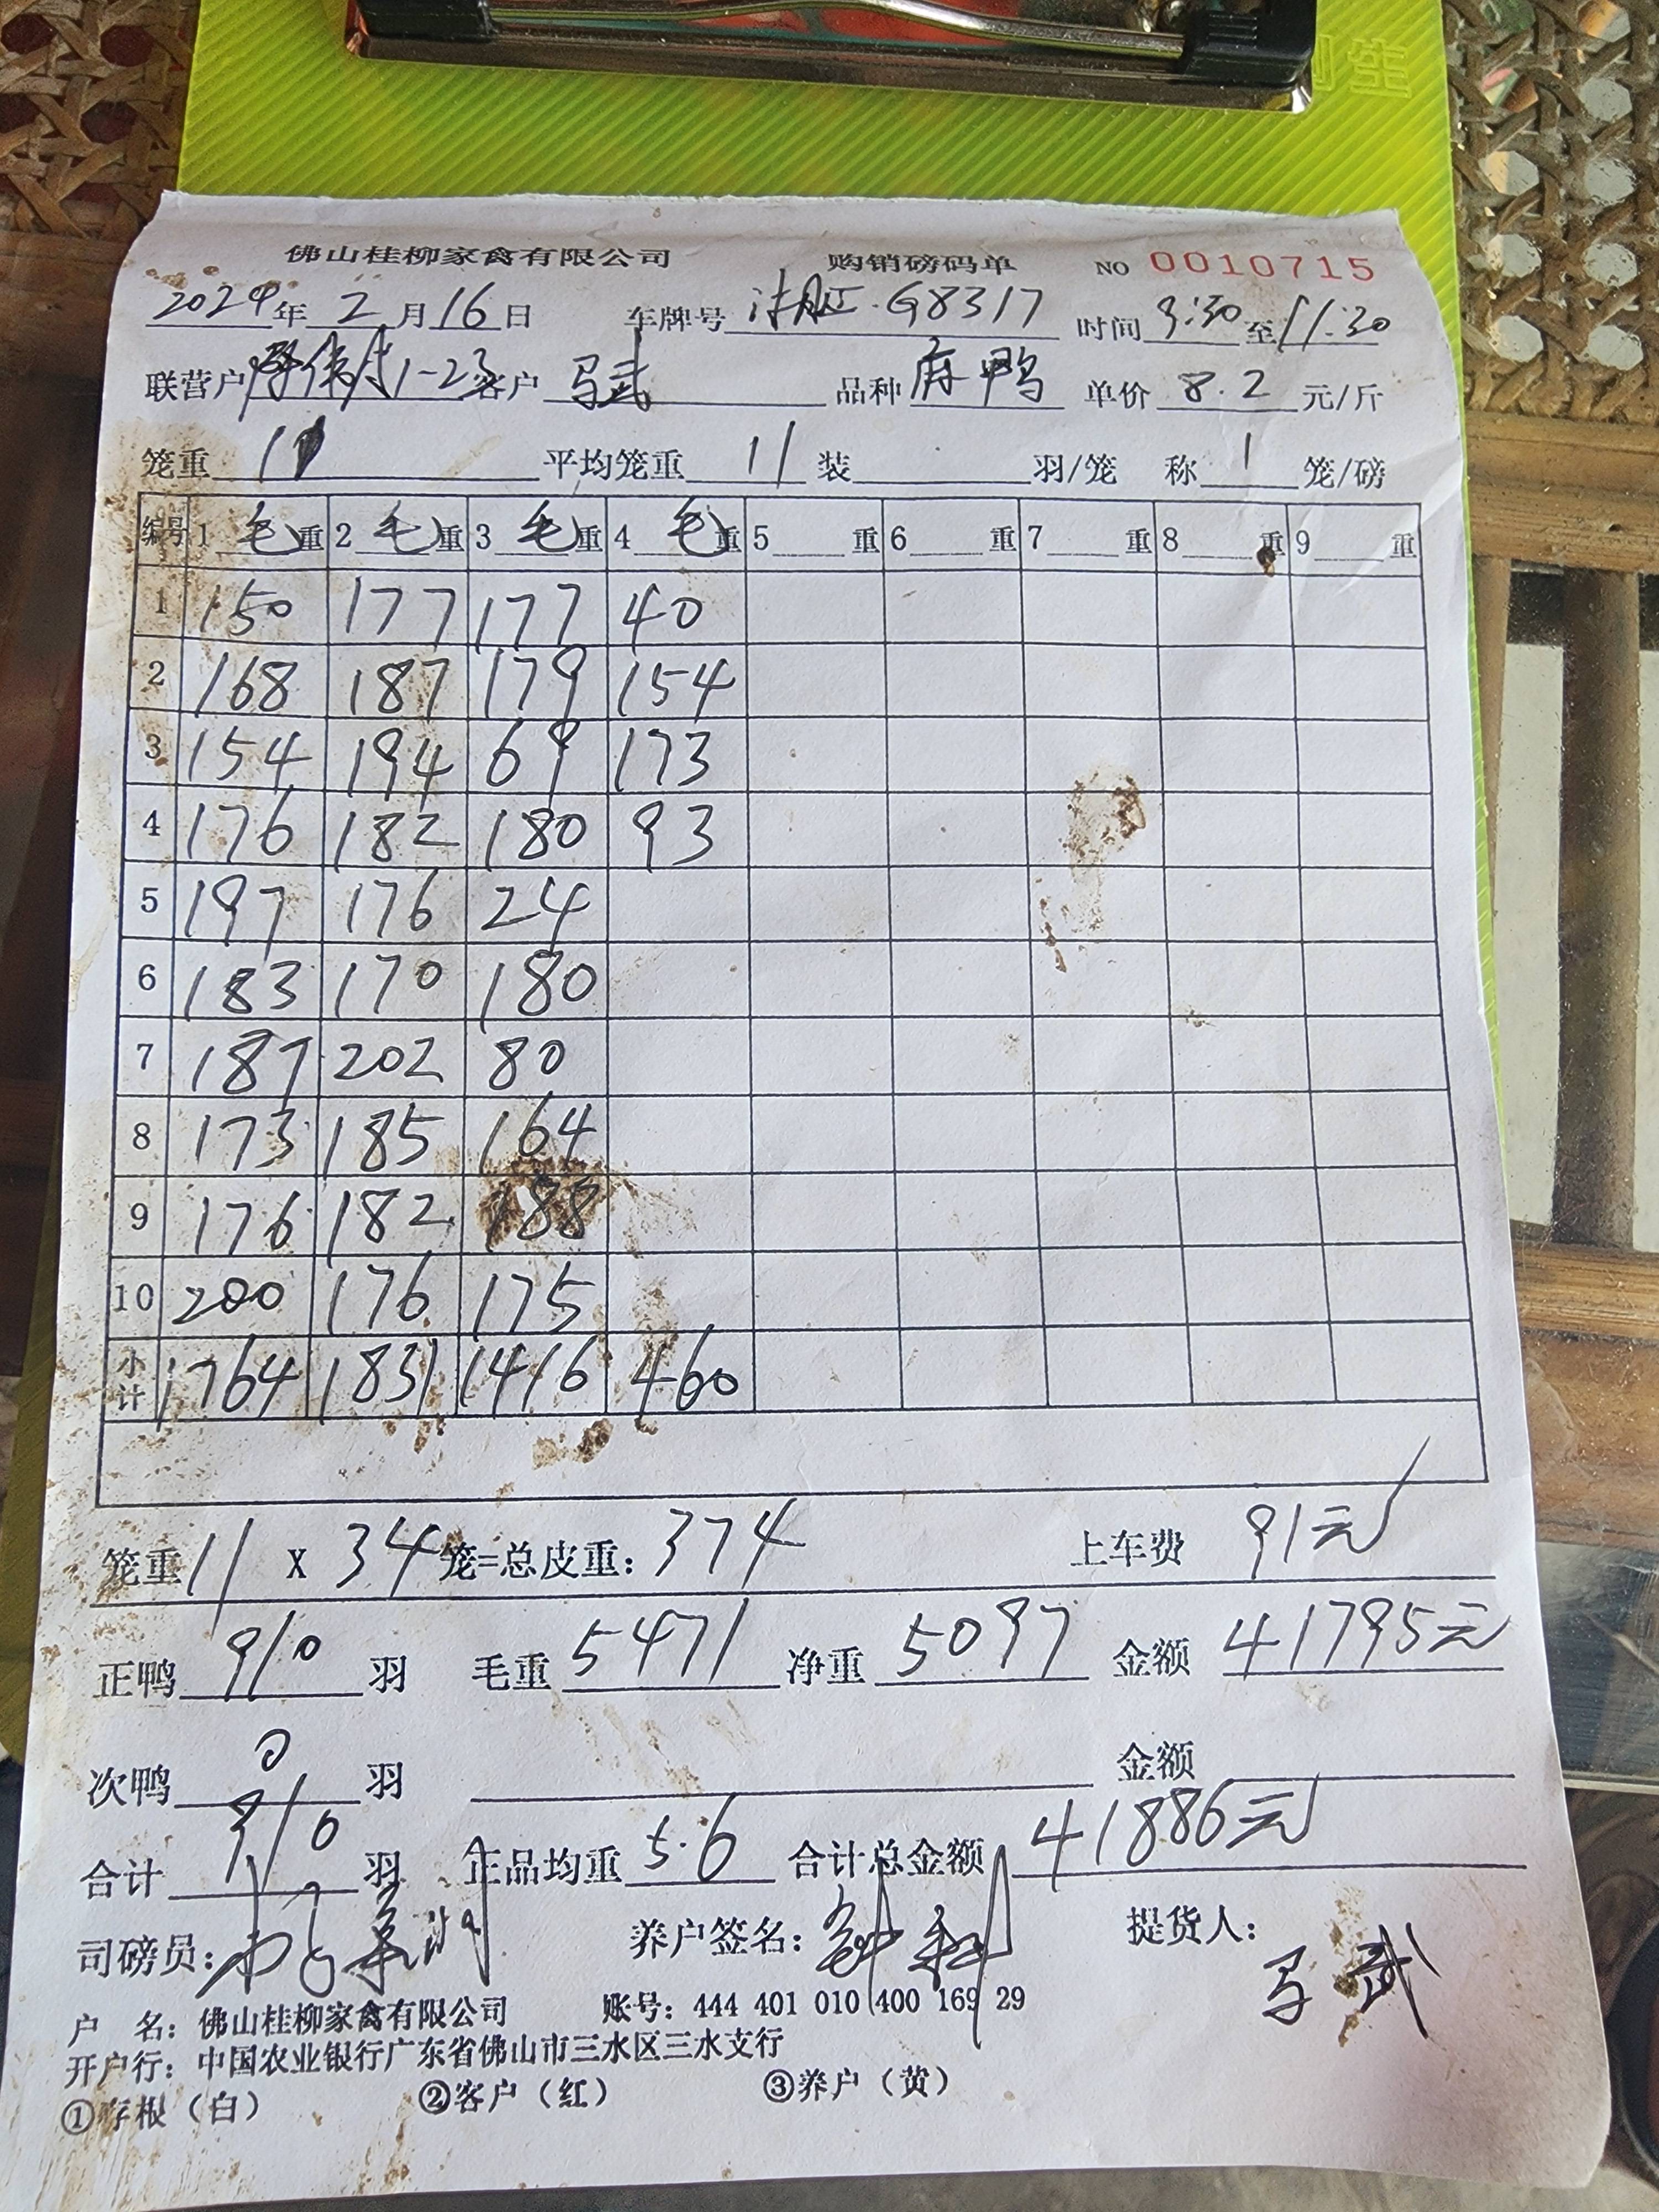 创生
佛山桂柳家禽有限公司 购销磅码单 NO 0010715
2024年 2月16日 车牌号 G8317 时间 9:30 至 11:30
联营户 1-2 客户 马武 品种 麻鸭 单价 8.2 元/斤
笼重 11 平均笼重 11 装 羽/笼 称 1 笼/磅
编号 1 毛重 2 毛重 3 毛重 4 毛重 5 重 6 重 7 重 8 重 9 重
1 150 177 177 40
2 168 187 179 154
3 154 194 69 173
4 176 182 180 93
5 197 176 24
6 183 170 180
7 187 202 80
8 173 185 164
9 176 182 188
10 200 176 175
小计 1764 1831 1416 460
笼重 11 X 34 笼=总皮重: 374 上车费 91元
正鸭 910 羽 毛重 5471 净重 5097 金额 41795元
次鸭 0 羽 金额
合计 910 羽 正品均重 5.6 合计总金额 41886元
司磅员: 养户签名: 提货人: 马武
户 名: 佛山桂柳家禽有限公司 账号: 444 401 010 400 169 29
开户行: 中国农业银行广东省佛山市三水区三水支行
①存根(白) ②客户(红) ③养户(黄)